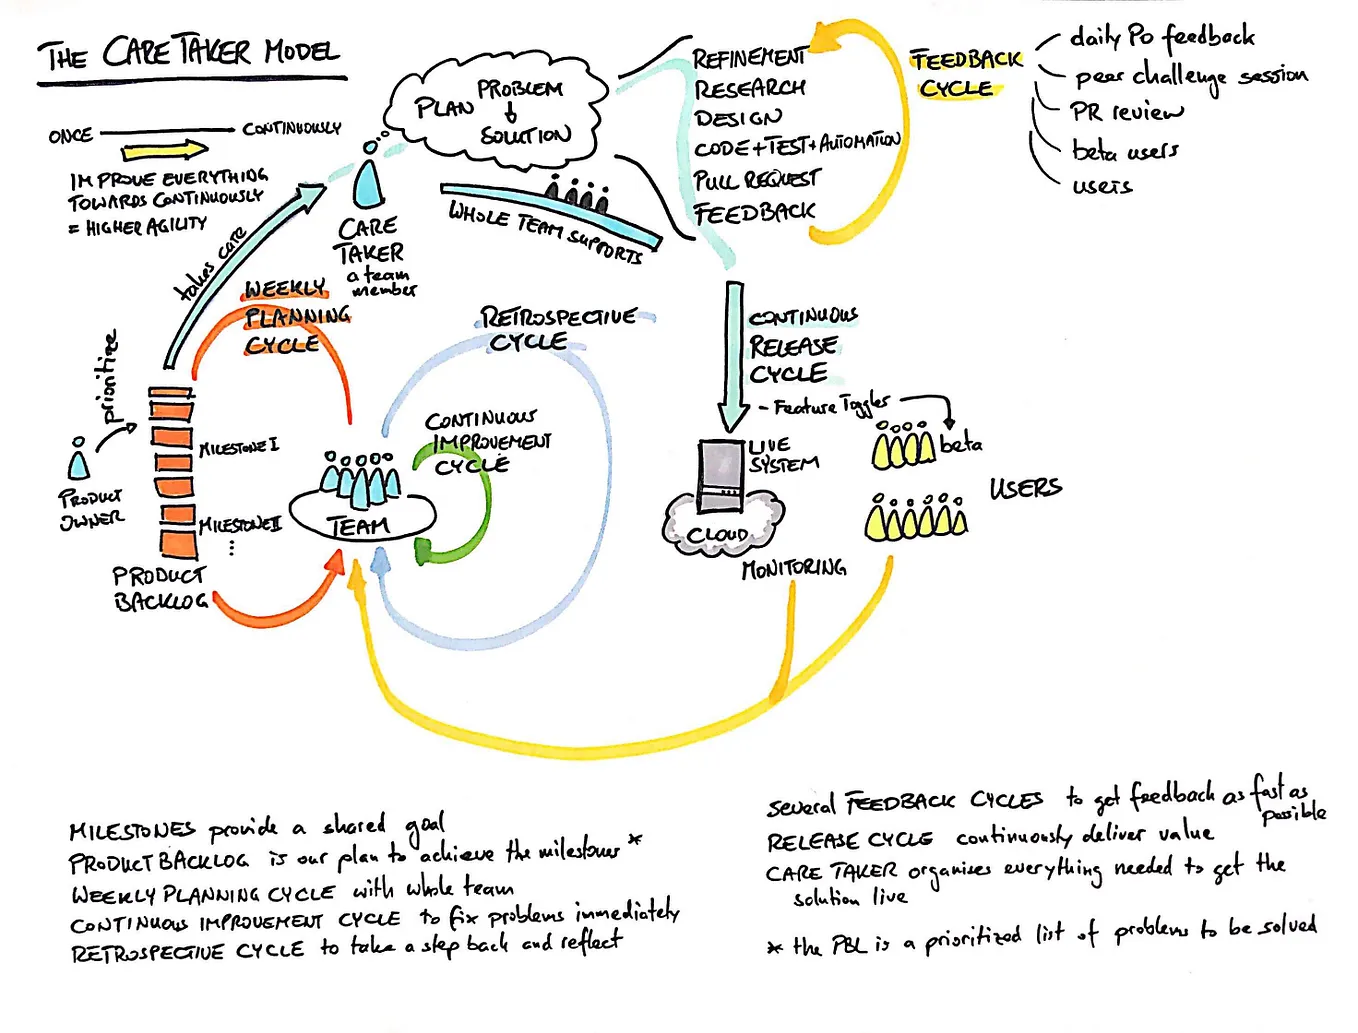 THE CARE TAKER MODEL
ONCE
CONTINUOUSLY
IMPROVE EVERYTHING
TOWARDS CONTINUOUSLY
= HIGHER AGILITY
PLAN
PROBLEM
SOLUTION
takes care
CARE
TAKER
a team
member
WHOLE TEAM SUPPORTS
REFINEMENT
RESEARCH
DESIGN
CODE+TEST+AUTOMATION
PULL REQUEST
FEEDBACK
FEEDBACK
CYCLE
daily PO feedback
peer challenge session
PR review
beta users
users
WEEKLY
PLANNING
CYCLE
RETROSPECTIVE
CYCLE
CONTINUOUS
IMPROVEMENT
CYCLE
CONTINUOUS
RELEASE
CYCLE
- Feature Toggles
prioritize
PRODUCT
OWNER
MILESTONE I
MILESTONE II
...
PRODUCT
BACKLOG
TEAM
LIVE
SYSTEM
CLOUD
MONITORING
beta
USERS
MILESTONES provide a shared goal
PRODUCT BACKLOG is our plan to achieve the milestones *
WEEKLY PLANNING CYCLE with whole team
CONTINUOUS IMPROVEMENT CYCLE to fix problems immediately
RETROSPECTIVE CYCLE to take a step back and reflect
several FEEDBACK CYCLES to get feedback as fast as
possible
RELEASE CYCLE continuously deliver value
CARE TAKER organises everything needed to get the
solution live
* the PBL is a prioritized list of problems to be solved